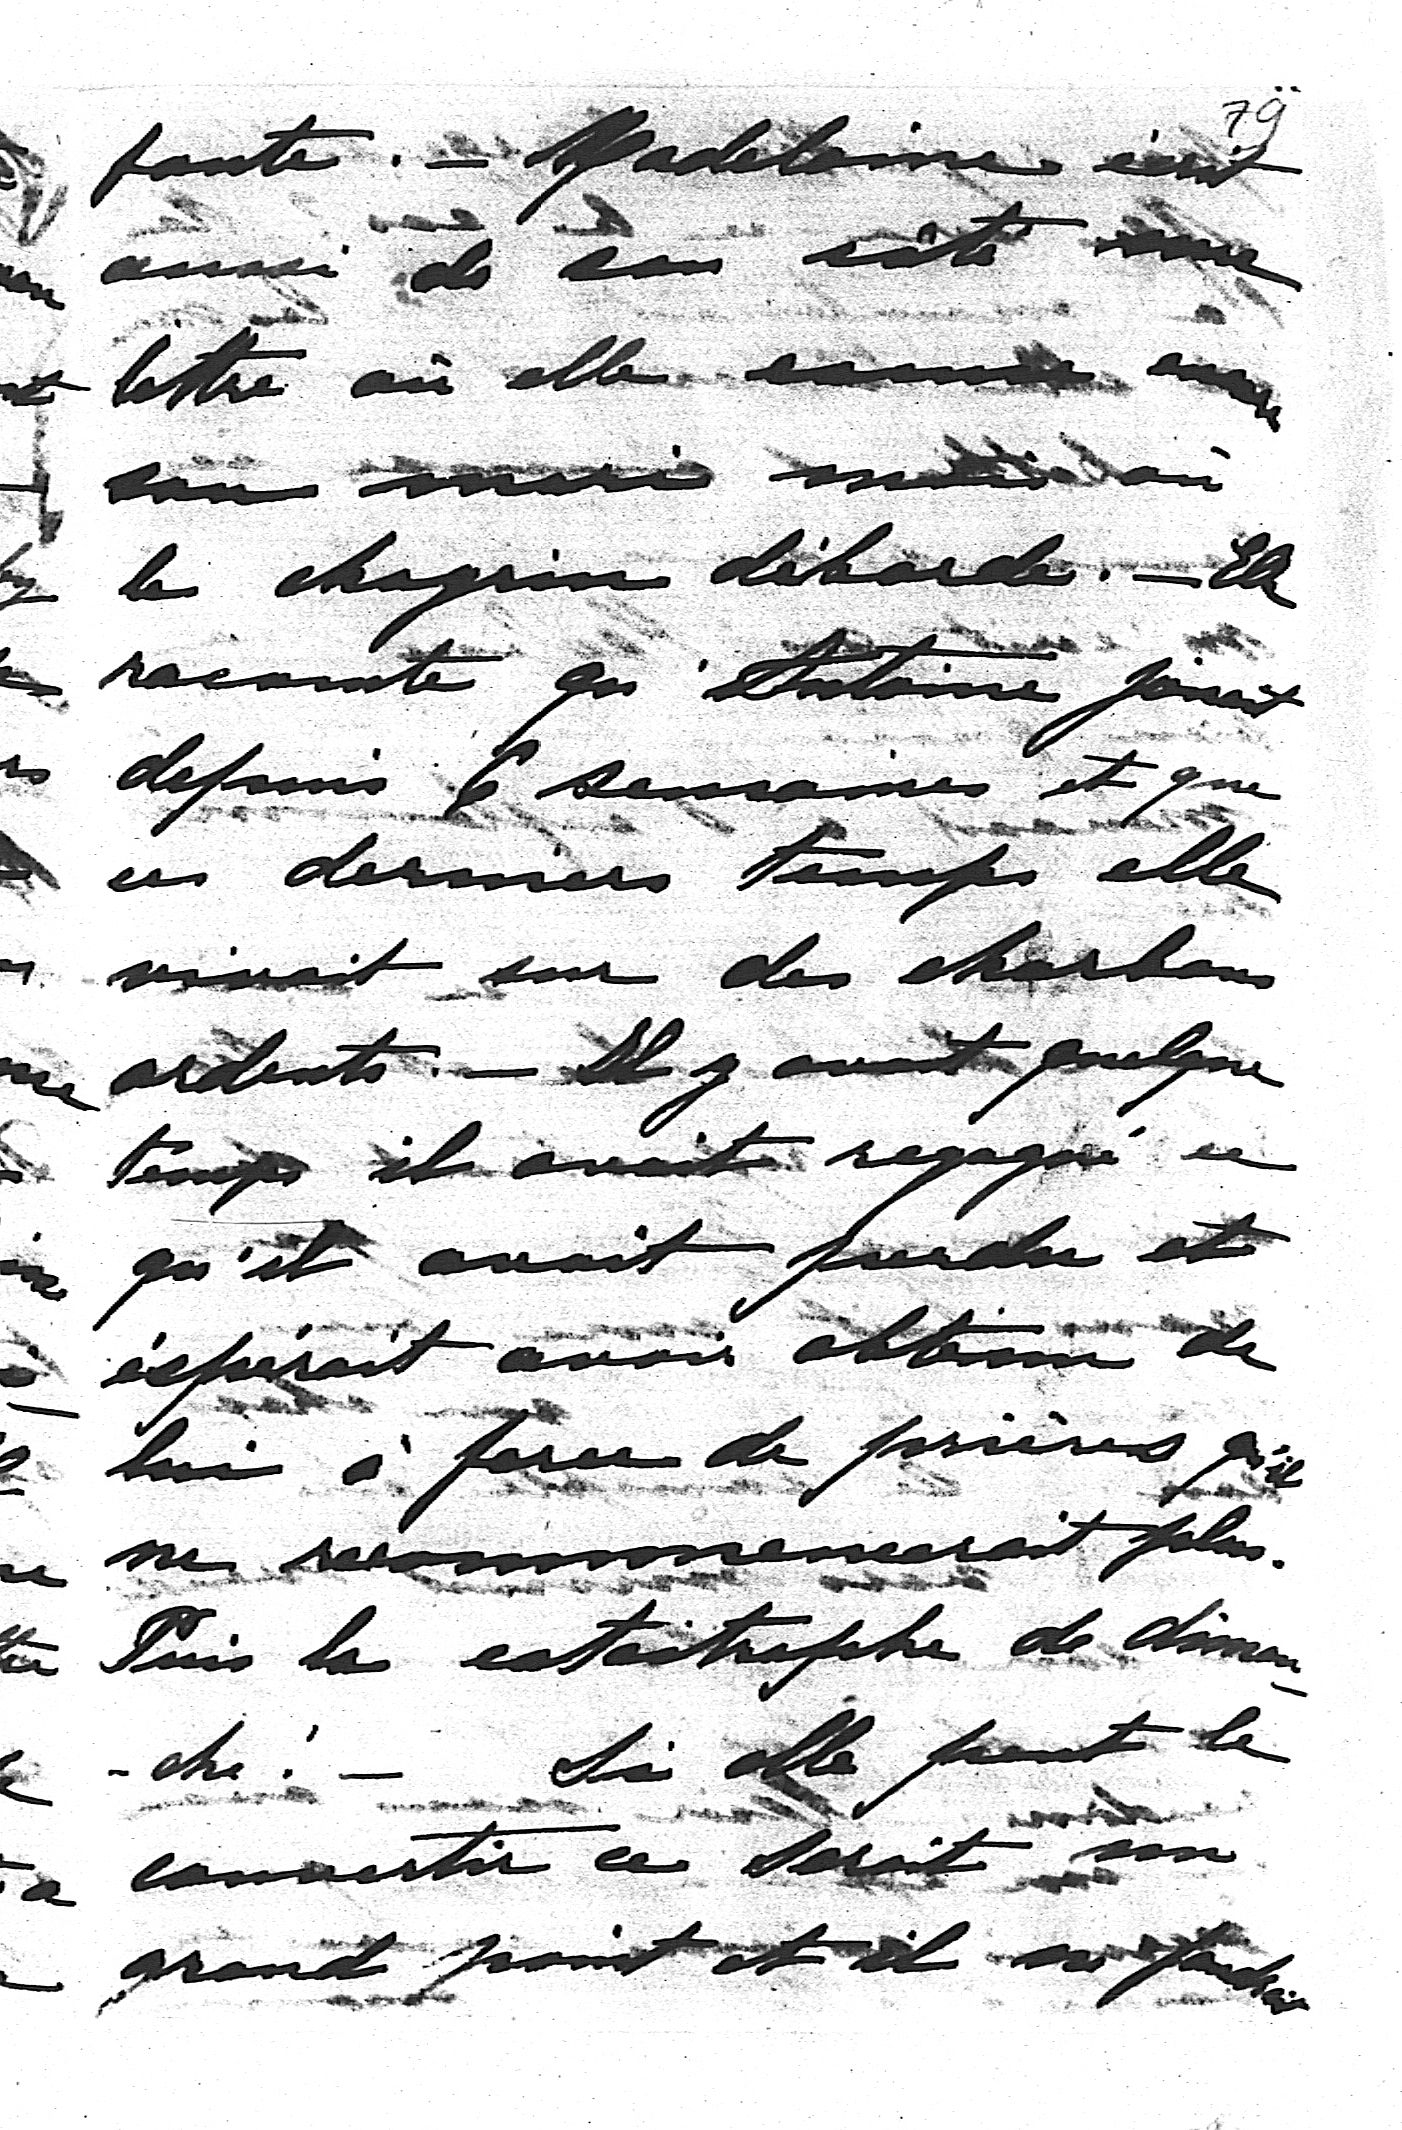 79
faute. — Madeleine écrit
aussi de son côté une
lettre où elle excuse encore
son mari mais où
le chagrin déborde. — Elle
raconte qu'Antoine jouait
depuis 6 semaines et que
ces derniers temps elle
vivait sur des charbons
ardents. — Il y avait quelque
temps il avait regagné ce
qu'il avait perdu et
éspérait avoir obtenu de
lui à force de prières qu'il
ne recommencerait plus.
Puis la catastrophe de diman
-che! — Si elle peut le
convertir ce serait un
grand point et il ne faudrait